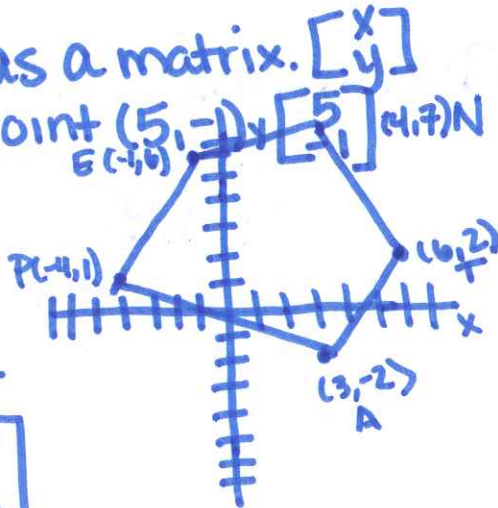 as a matrix. [x
y]
oint (5,-1) y [5
-1] (4,7) N
E (-1,6)
P(-4,1)
(6,2)
T
x
(3,-2)
A